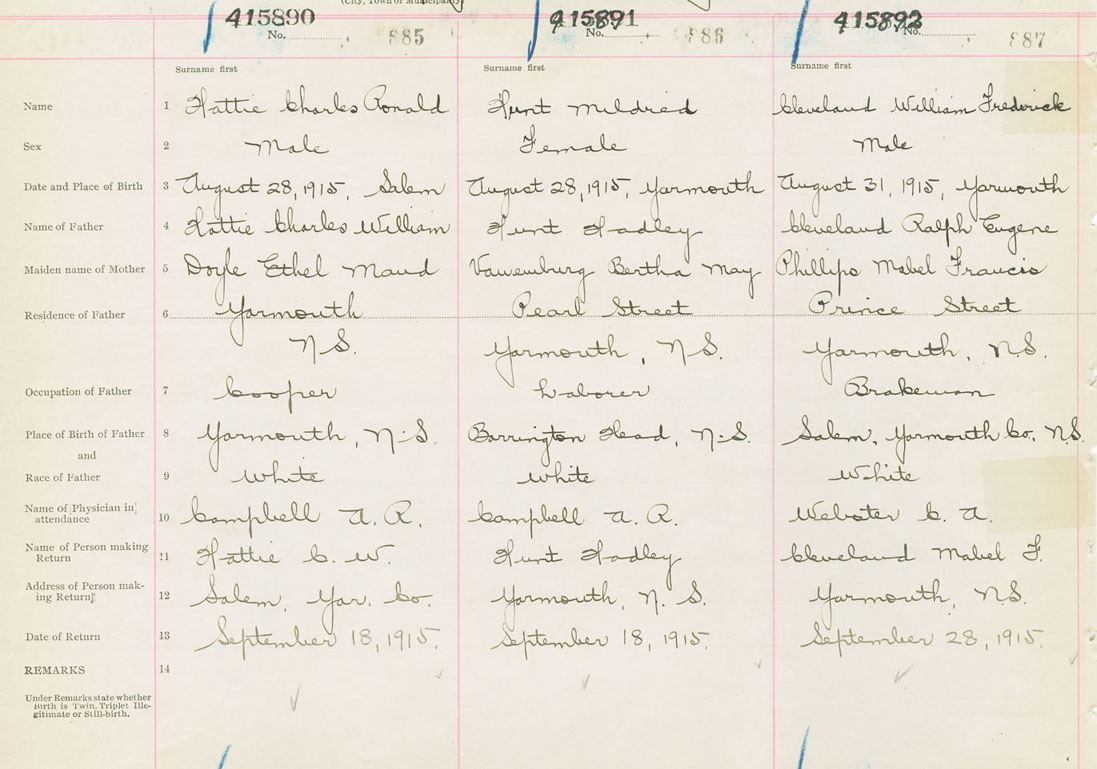 (City, Town or Municipality)
415890 415891 415892
No. 885 No. 886 No. 887
Surname first Surname first Surname first
Name 1 Hattie Charles Ronald Hunt Mildred Cleveland William Frederick
Sex 2 Male Female Male
Date and Place of Birth 3 August 28, 1915, Salem August 28, 1915, Yarmouth August 31, 1915, Yarmouth
Name of Father 4 Hattie Charles William Hunt Hadley Cleveland Ralph Eugene
Maiden name of Mother 5 Doyle Ethel Maud Bertha May Phillips Mabel Francis
Residence of Father 6 Yarmouth Pearl Street Prince Street
N.S. Yarmouth, N.S. Yarmouth, N.S.
Occupation of Father 7 Cooper Laborer Brakeman
Place of Birth of Father 8 Yarmouth, N.S. Barrington Head, N.S. Salem, Yarmouth Co, N.S.
and
Race of Father 9 White White White
Name of Physician in
attendance 10 Campbell A. R. Campbell A. R. Webster C. A.
Name of Person making
Return 11 Hattie C. W. Hunt Hadley Cleveland Mabel F.
Address of Person mak-
ing Return 12 Salem, Yar. Co. Yarmouth, N. S. Yarmouth, N.S.
Date of Return 13 September 18, 1915. September 18, 1915. September 28, 1915.
REMARKS 14
Under Remarks state whether
Birth is Twin, Triplet Ille-
gitimate or Still-birth.